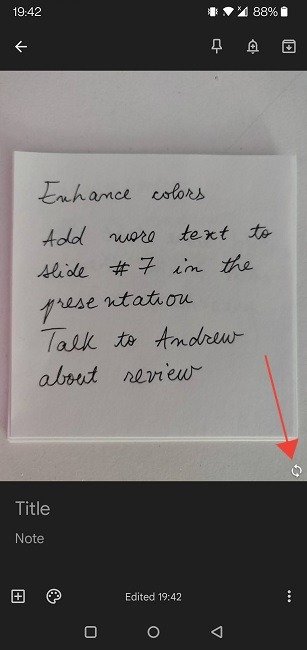 19:42
88%
Enhance colors
Add more text to
slide #7 in the
presentation
Talk to Andrew
about review
Title
Note
Edited 19:42